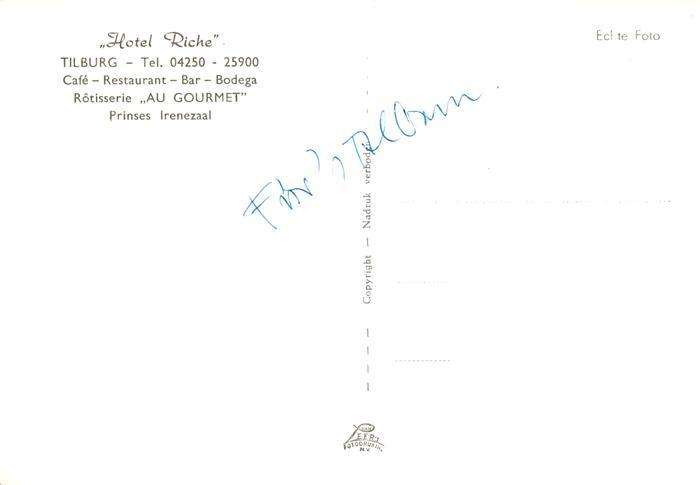 „Hotel Riche”
TILBURG – Tel. 04250 - 25900
Café – Restaurant – Bar – Bodega
Rôtisserie „AU GOURMET”
Prinses Irenezaal
Echte Foto
Für's Album
Copyright — Nadruk verboden